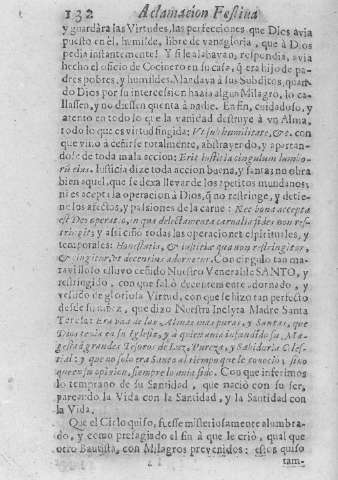 132 Aclamacion Festiva
y guardàra las Virtudes, las perfecciones que Dios avia
puesto en èl, humilde, libre de vanagloria, que à Dios
pedia instantemente! Y si le alabavan, respondia, avia
hecho el oficio de Cocinero en su casa, q̃ era hijo de pa-
dres pobres, y humildes. Mandava à sus Subditos, quan-
do Dios por su intercession hazia algun Milagro, lo ca-
llassen, y no diessen quenta à nadie. En fin, cuidadoso, y
atento en todo lo que la vanidad destruye à vn Alma,
todo lo que es virtud fingida: humilitate, &c. con
que vino à ceñirse totalmente, abstrayendo, y apartan-
dose de toda mala accion: Erit justitia cingulum lumbo-
rũ eius. Iusticia dize toda accion buena, y santa; no obra
bien aquel, que se dexa llevar de los apetitos mundanos;
ni es acepta la operacion à Dios, q̃ no restringe, y detie-
ne los afectos, y passiones de la carne: Nec bona accepta
est Deo operatio, in qua delectamenta carnalia sides non res-
tringit; y assi ciño todas las operaciones espirituales, y
temporales: Honestaria, & iustitia qua non restringitur,
& cingitur, ut decentius adornetur. Con cingulo tan ma-
ravilloso estuvo ceñido Nuestro Venerable SANTO, y
restringido, con que salò decentemente adornado, y
vestido de gloriosa Virtud, con que se hizo tan perfecto
desde su niñez, que dixo Nuestra Inclyta Madre Santa
Teresa: Era una de las Almas mas puras, y Santas, que
Dios tenia en su Iglesia, y à quien avia infundido su Ma-
gestad grandes Tesoros de Luz, Pureza, y Sabiduria Celes-
tial: y que no solo era Santo al tiempo que le conocia; sino
que en su opinion, siempre lo avia sido. Con que inferimos
lo temprano de su Santidad, que naciò con su ser,
pareando la Vida con la Santidad, y la Santidad con
la Vida.
Que el Cielo quiso, fuesse misteriosamente alumbra-
do, y como presagiando el fin à que le criò, qual que
otro Bautista, con Milagros prevenidos: estos quiso
tam-